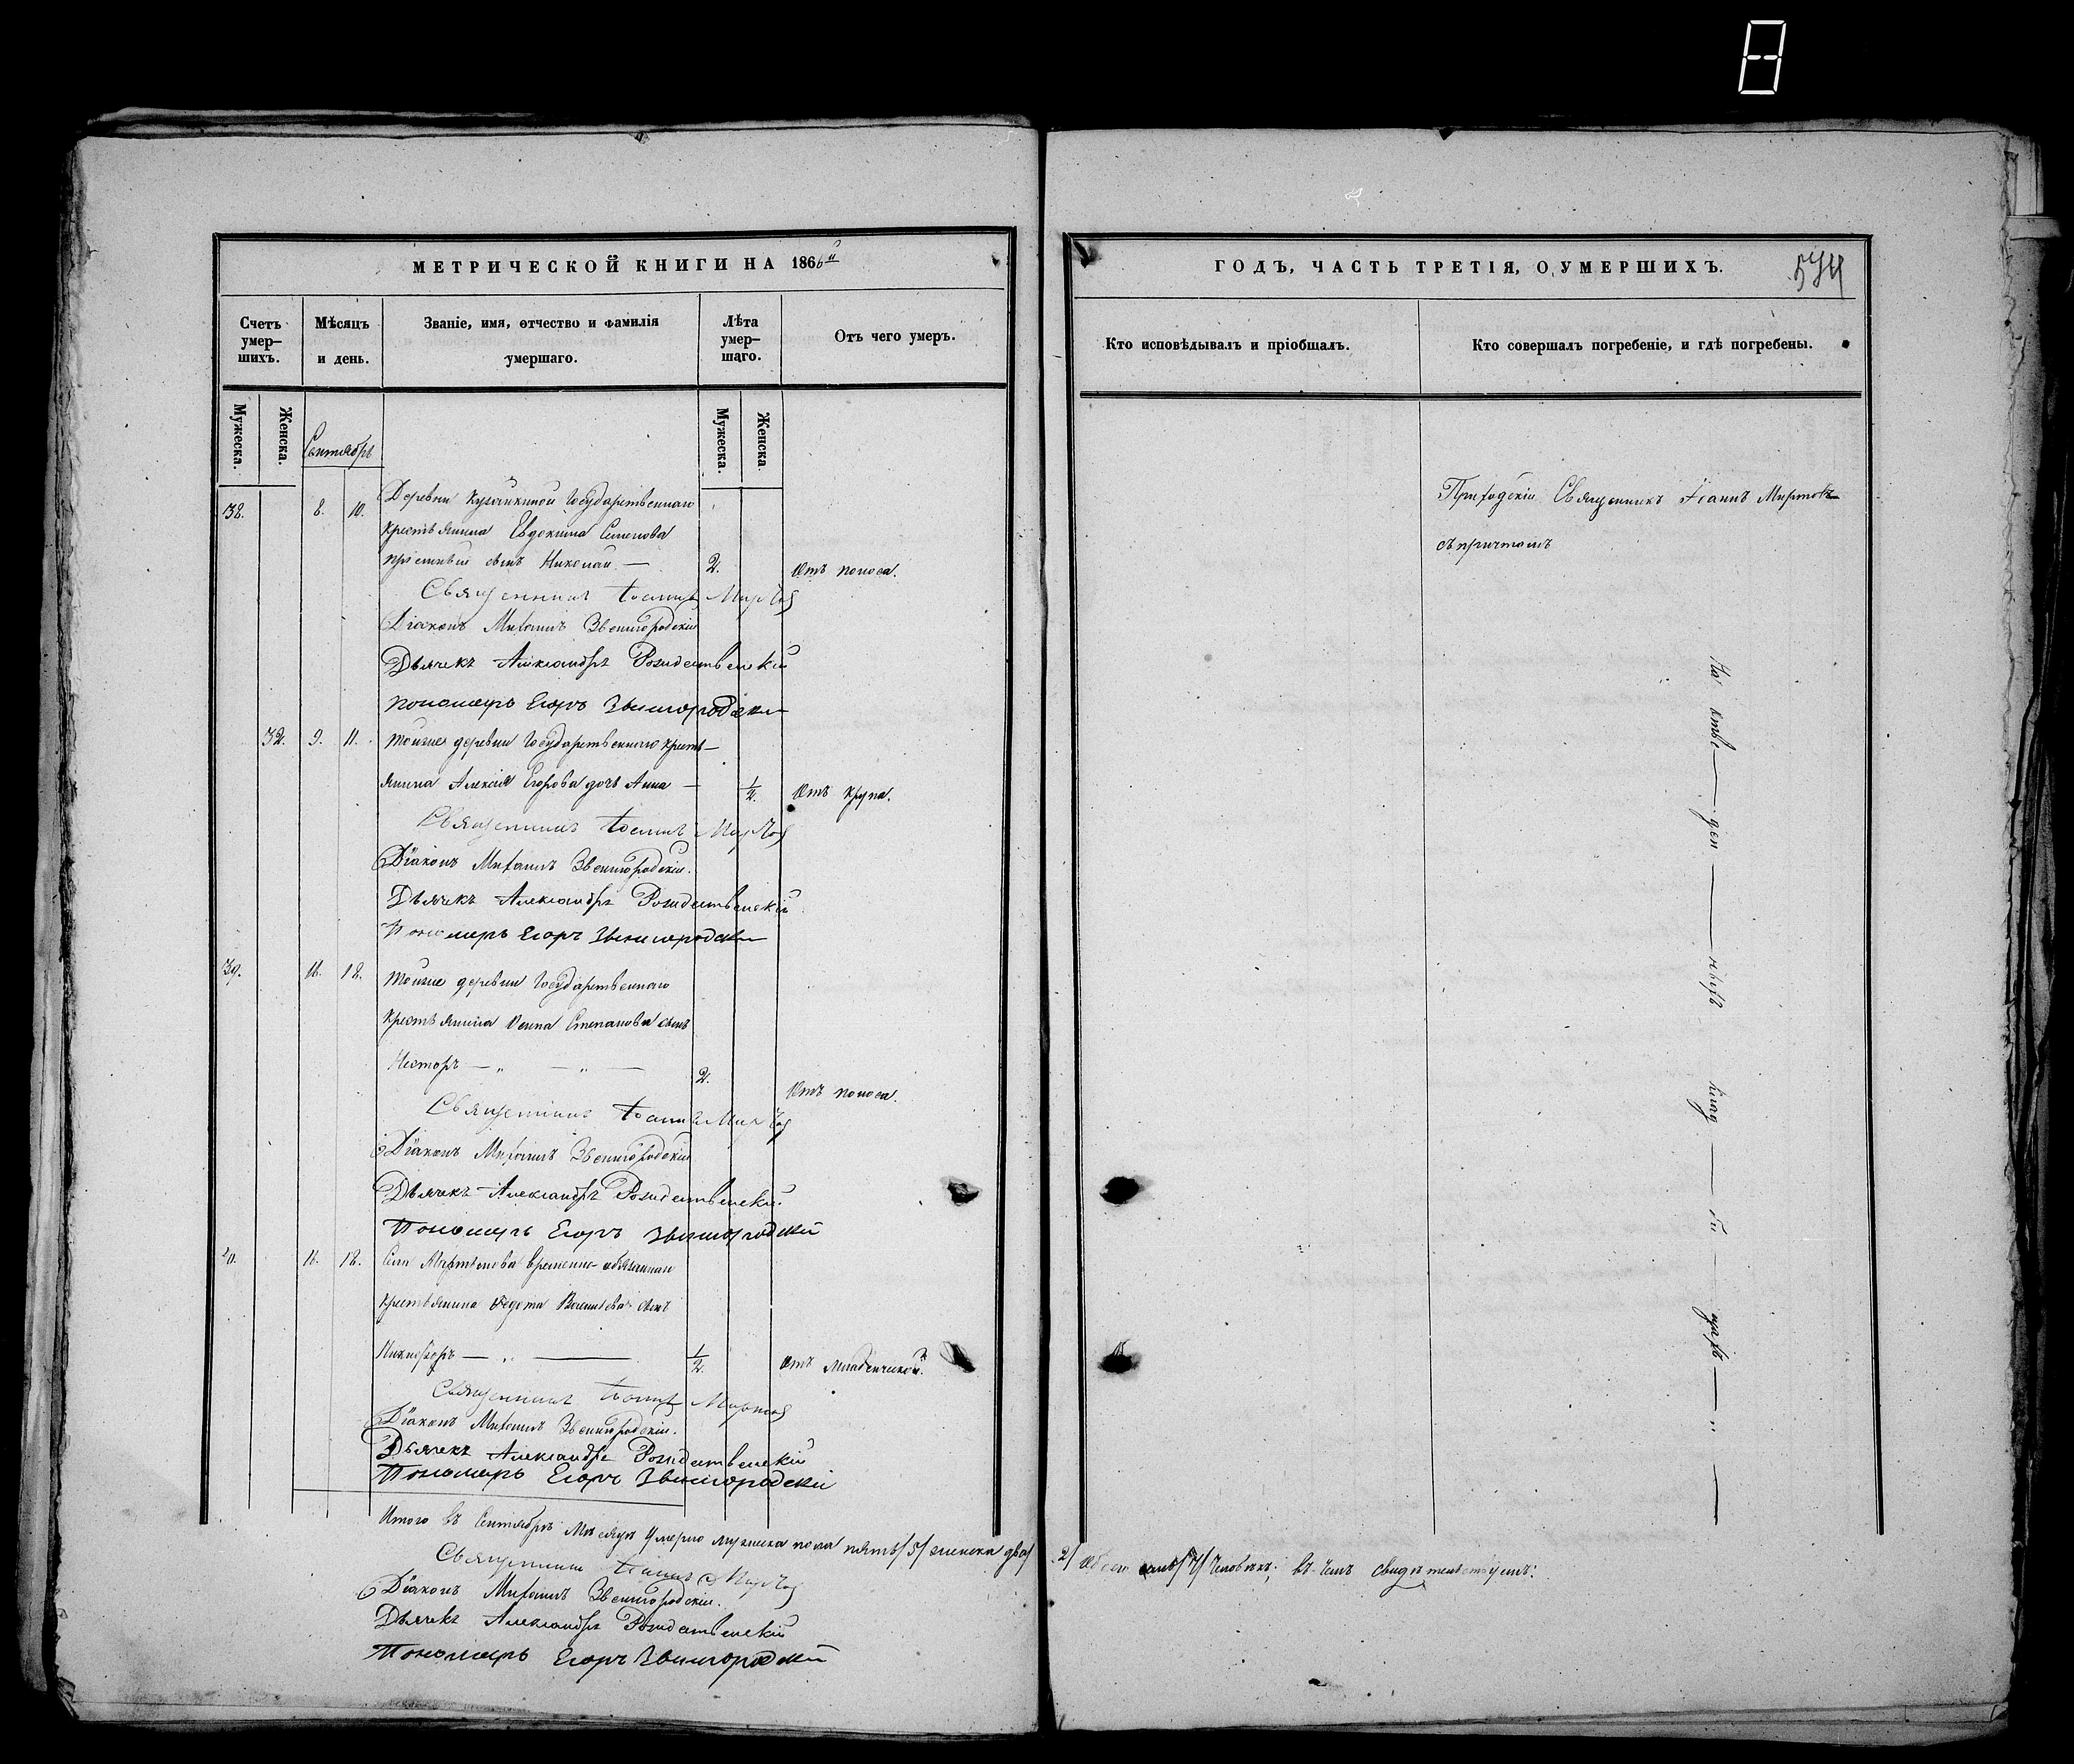 МЕТРИЧЕСКОЙ КНИГИ НА 1866й
Счетъ умер-шихъ.
Мѣсяцъ и день.
Званіе, имя, отчество и фамилія умершаго.
Лѣта умер-шаго.
Отъ чего умеръ.
Мужеска.
Женска.
Сентябрь
Мужеска.
Женска
38. 8. 10. Деревни Государственнаго
крестьянина Евдокима Семенова
сынъ Николай — 2. Отъ поноса.
Священникъ Іоаннъ Миртовъ
Діаконъ Михаилъ Звенигородскій
Дьячекъ Александръ Рождественскій
Пономарь Егоръ Звенигородскій
32. 9. 11. Тойже деревни Государственнаго кресть-
янина Алексія Егорова дочь Анна — 1/2. Отъ крупа.
Священникъ Іоаннъ Миртовъ
Діаконъ Михаилъ Звенигородскій.
Дьячекъ Александръ Рождественскій
Пономарь Егоръ Звенигородскій
39. 16. 18. Тойже деревни Государственнаго
крестьянина Осипа Степанова сынъ
Несторъ — „ — „ — 2. Отъ поноса.
Священникъ Іоаннъ Миртовъ
Діаконъ Михаилъ Звенигородскій
Дьячекъ Александръ Рождественскій
Пономарь Егоръ Звенигородскій
40. 16. 18. Села временно-обязаннаго
крестьянина Федота Васильева сынъ
Никифоръ — „ — 1/2. Отъ младенческой.
Священникъ Іоаннъ Миртовъ
Діаконъ Михаилъ Звенигородскій.
Дьячекъ Александръ Рождественскій
Пономарь Егоръ Звенигородскій
Итого въ Сентябрѣ мѣсяцѣ умерло мужеска пола пять/5/ женска два/
Священникъ Іоаннъ Миртовъ
Діаконъ Михаилъ Звенигородскій.
Дьячекъ Александръ Рождественскій
Пономарь Егоръ Звенигородскій
ГОДЪ, ЧАСТЬ ТРЕТІЯ, О УМЕРШИХЪ.
574
Кто исповѣдывалъ и пріобщалъ.
Кто совершалъ погребеніе, и гдѣ погребены.
Приходскій Священникъ Іоаннъ Миртовъ
съ причтомъ
На отве — ден — ныхъ клад — би — щахъ — „ —
2/ Обоего семь/7/ человѣкъ; въ чемъ свидѣтельствуемъ: